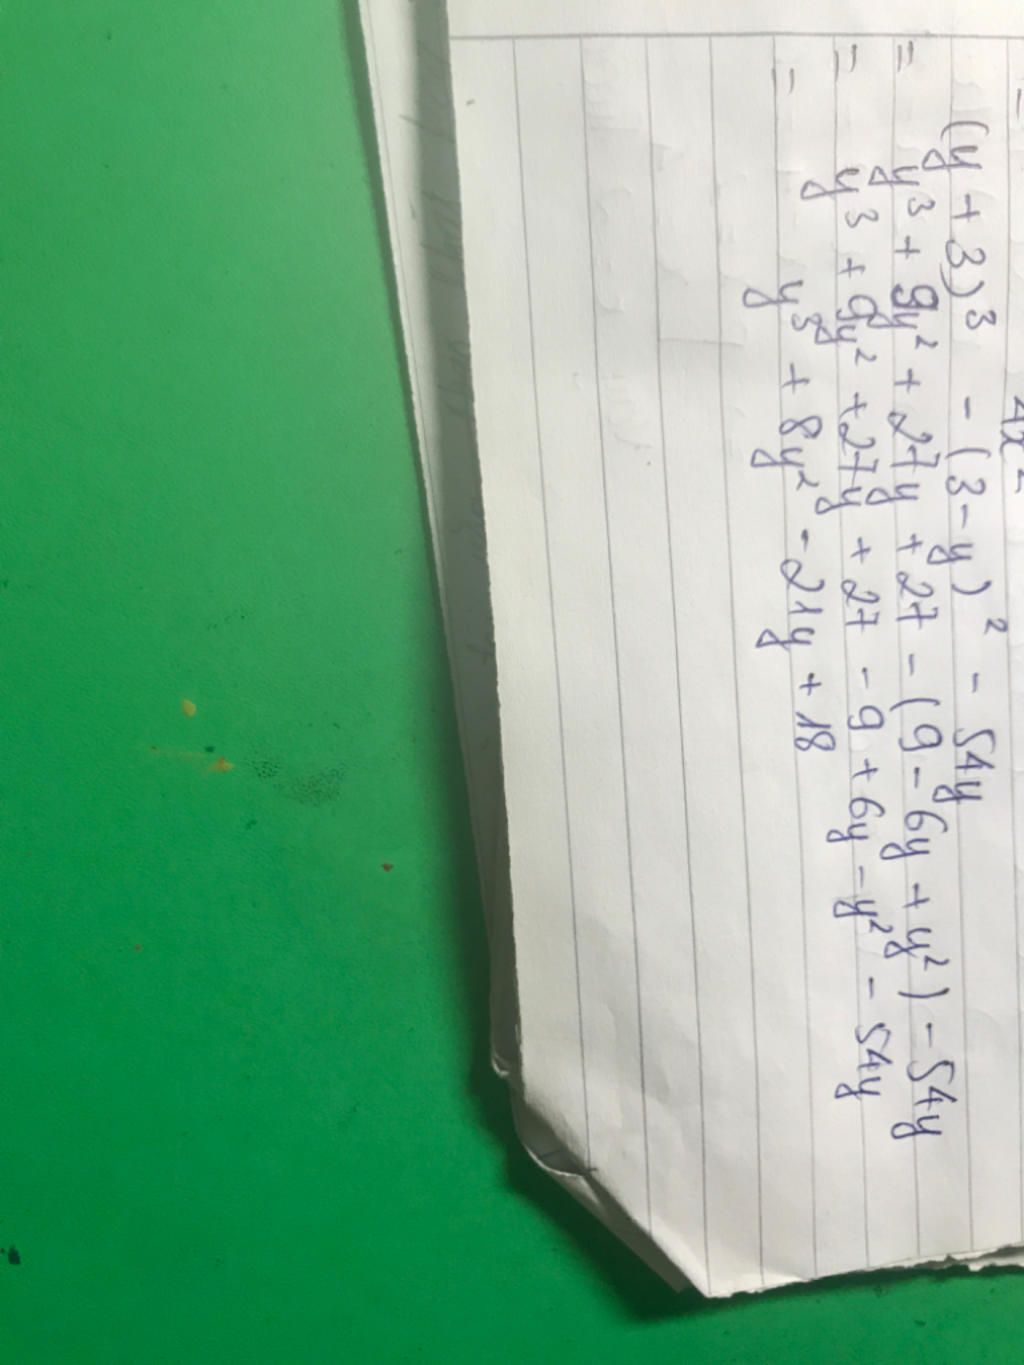 = 4x²
(y + 3)³ - (3 - y)² - 54y
= y³ + 9y² + 27y + 27 - (9 - 6y + y²) - 54y
= y³ + 9y² + 27y + 27 - 9 + 6y - y² - 54y
= y³ + 8y² - 21y + 18